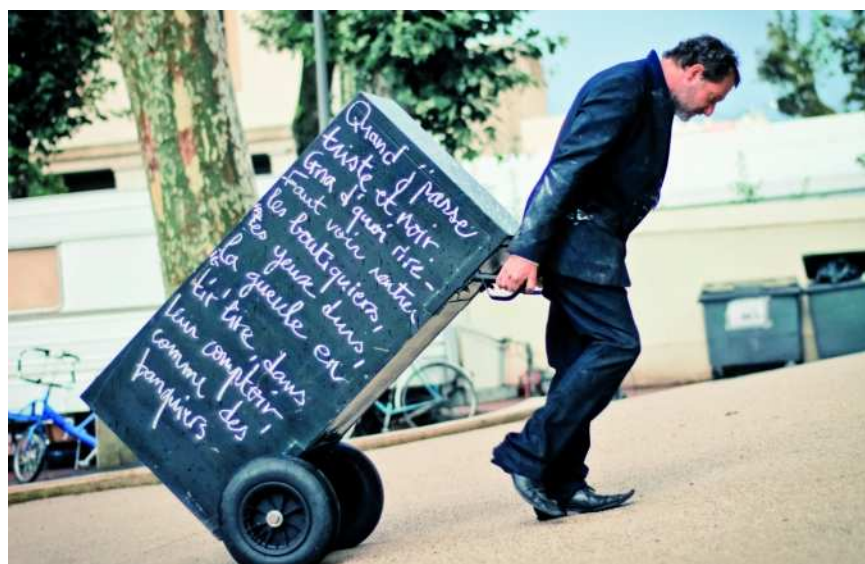 Quand j'passe
triste et noir
Gna d'quoi rire -
Faut voir rentrer
les boutiquiers,
les yeux durs,
la gueule en
tir'lire, dans
leur comptoir,
comme des
banquiers